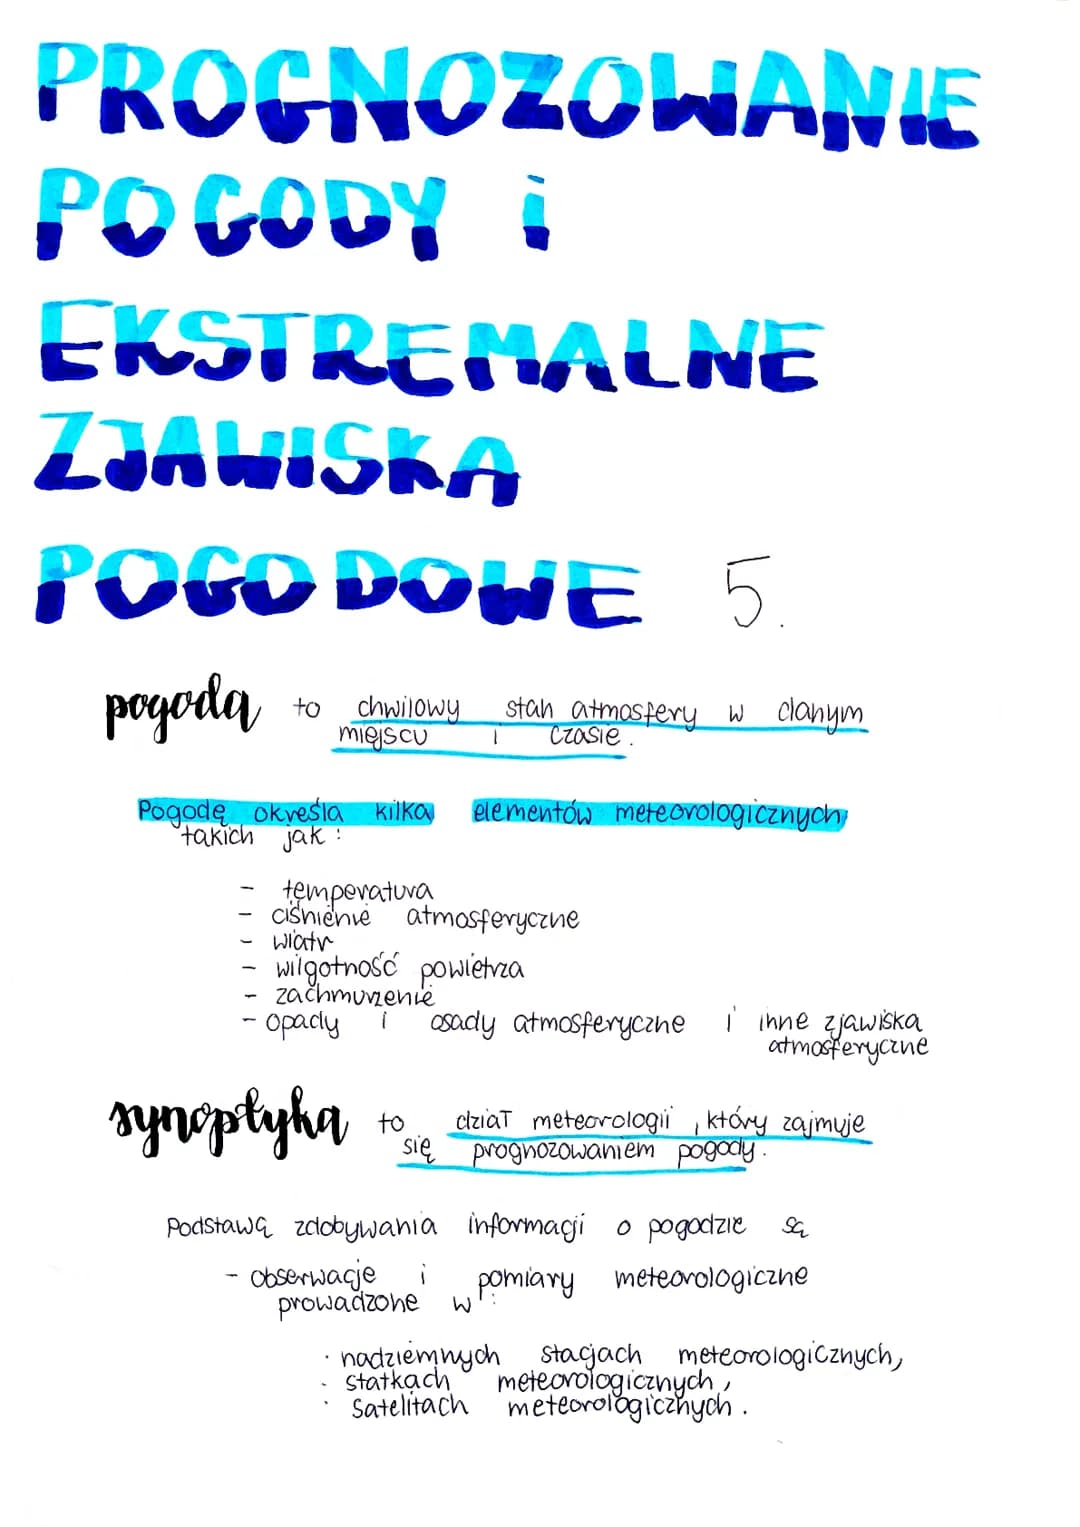 PROGNOZOWANIE
POGODY i
EKSTREMALNE
ZJAWISKA
POGODOWE 5.
pogoda to chwilowy stan atmosfery w danym
miejscu i czasie.
Pogodę określa kilka elementów meteorologicznych
takich jak:
- temperatura
- ciśnienie atmosferyczne
- wiatr
- wilgotność powietrza
- zachmurzenie
- opady i osady atmosferyczne i inne zjawiska
atmosferyczne
synoptyka to dział meteorologii, który zajmuje
się prognozowaniem pogody.
Podstawą zdobywania informacji o pogodzie są
- obserwacje i pomiary meteorologiczne
prowadzone w:
· nadziemnych stacjach meteorologicznych,
· statkach meteorologicznych,
· satelitach meteorologicznych.